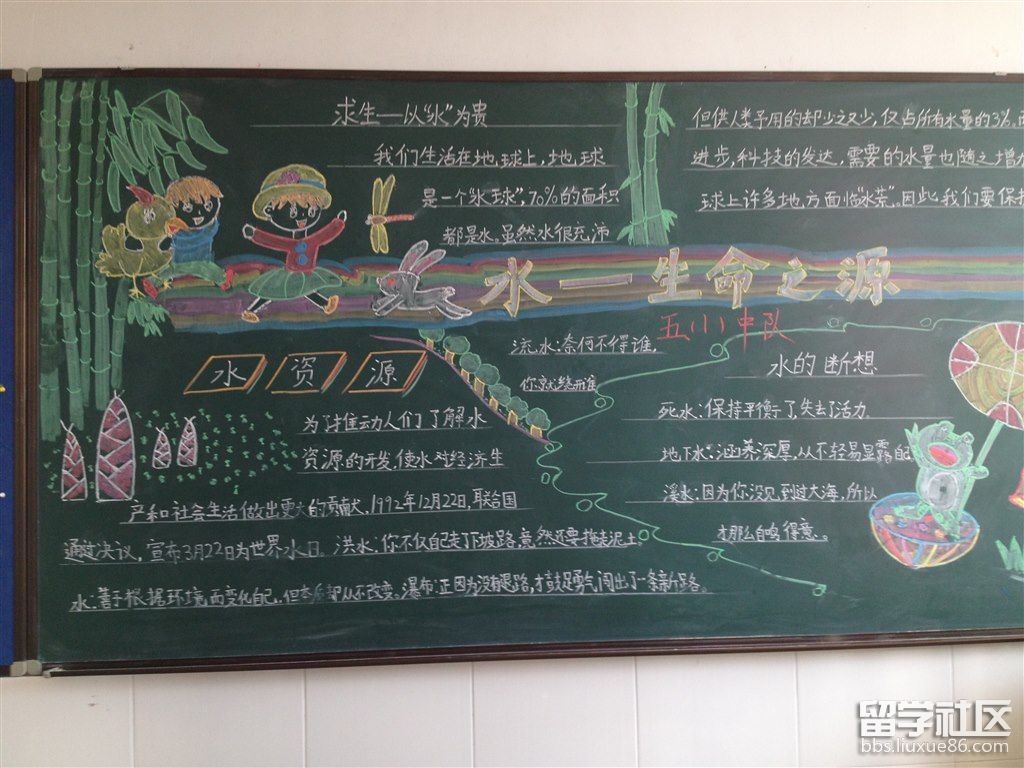 求生——以“水”为贵
我们生活在地球上,地球
是一个“水球”,70%的面积
都是水。虽然水很充沛
但供人类予用的却少之又少,仅占所有水量的3%。
进步,科技的发达,需要的水量也随之增
球上许多地方面临“水荒”。因此,我们要保
水—生命之源
五(1)中队
水资源
为了推动人们了解水
资源的开发,使水对经济生
产和社会生活做出更大的贡献,1992年12月22日,联合国
通过决议,宣布3月22日为世界水日。洪水:你不仅自己走下坡路,竟然还要拖走泥土。
水:善于根据环境而变化自己,但本质却从不改变。瀑布:正因为没有退路,才鼓足勇气,闯出了一条新路。
流水:奈何不得谁,
你就绕开谁
水的断想
死水:保持平衡了,失去了活力
地下水:涵养深厚,从不轻易显露自
溪水:因为你没见到过大海,所以
才那么自鸣得意。
留学社区
bbs.liuxue86.com